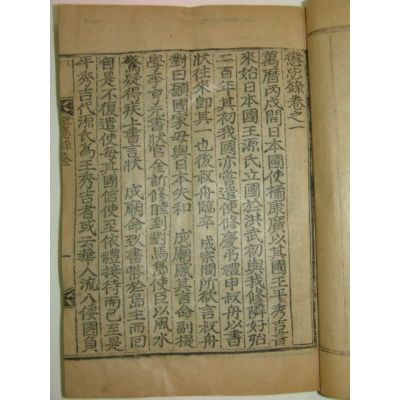 懲毖錄卷之一
萬曆丙戌間日本國使橘康廣以其國王平秀吉書
來始日本國王源氏立國於洪武初與我修隣好殆
二百年其初我國亦嘗遣使修慶弔禮申叔舟以書
狀往來卽其一也後叔舟臨卒 成宗問所欲言叔舟
對曰願國家毋與日本失和 成廟感其言命副提
學李亨元書狀官金訢修睦到對馬島使臣以風水
驚疑得疾上書言狀 成廟命致書幣於島主而回
自是不復遣使每其國信使至依禮接待而已至是
平秀吉代源氏爲王秀吉者或云華人流入倭國負
懲毖錄 一